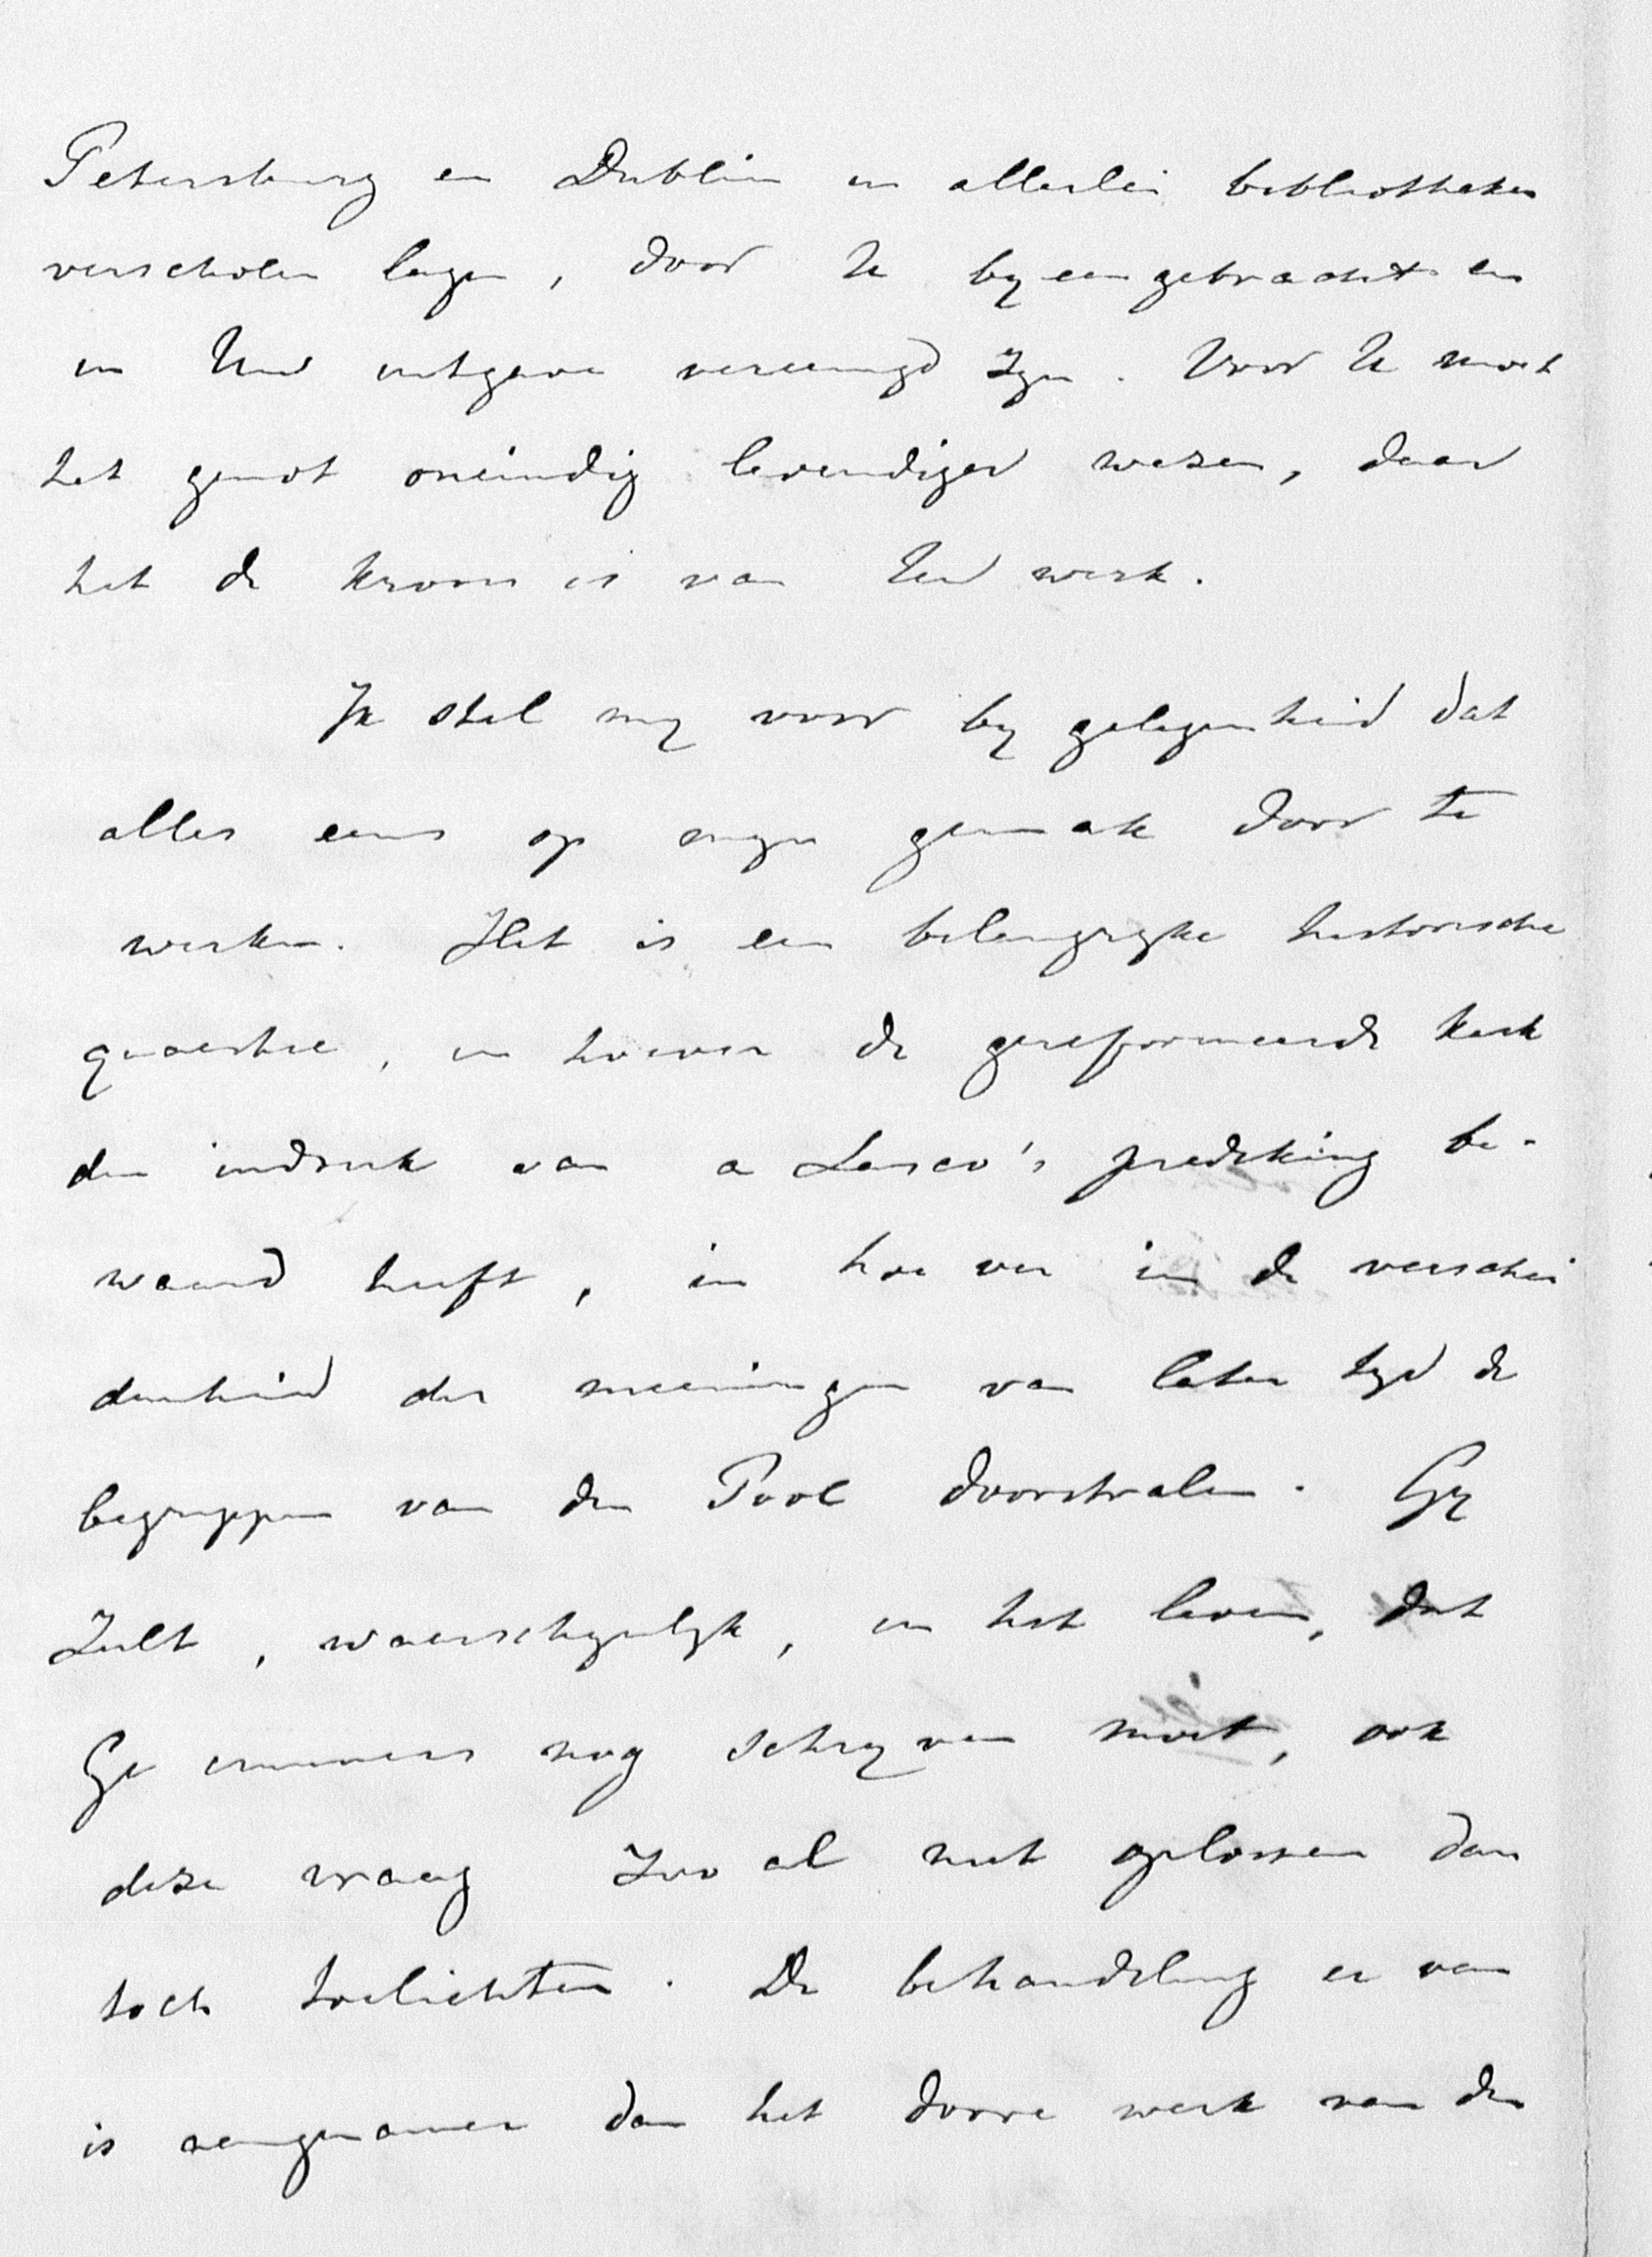 Petersburg en Dublin in allerlei bibliotheken
verscholen lagen, door U byeengebracht en
in Uw uitgave vereenigd zyn. Voor U moet
het genot oneindig levendiger wezen, daar
het de kroon is van Uw werk.
Ik stel my voor by gelegenheid dat
alles eens op myn gemak door te
werken. Het is een belangryke historische
quaestie, in hoever de gereformeerde kerk
den indruk van a Lasco's prediking be-
waard heeft, in hoever in de verschei
denheid der meeningen van later tyd de
begrippen van den Pool doorstralen. Gy
zult, waarschynlyk, in het leven, dat
Ge immers nog schryven moet, ook
deze vraag zoo al niet oplossen dan
toch toelichten. De behandeling er van
is aangenamer dan het dorre werk van den